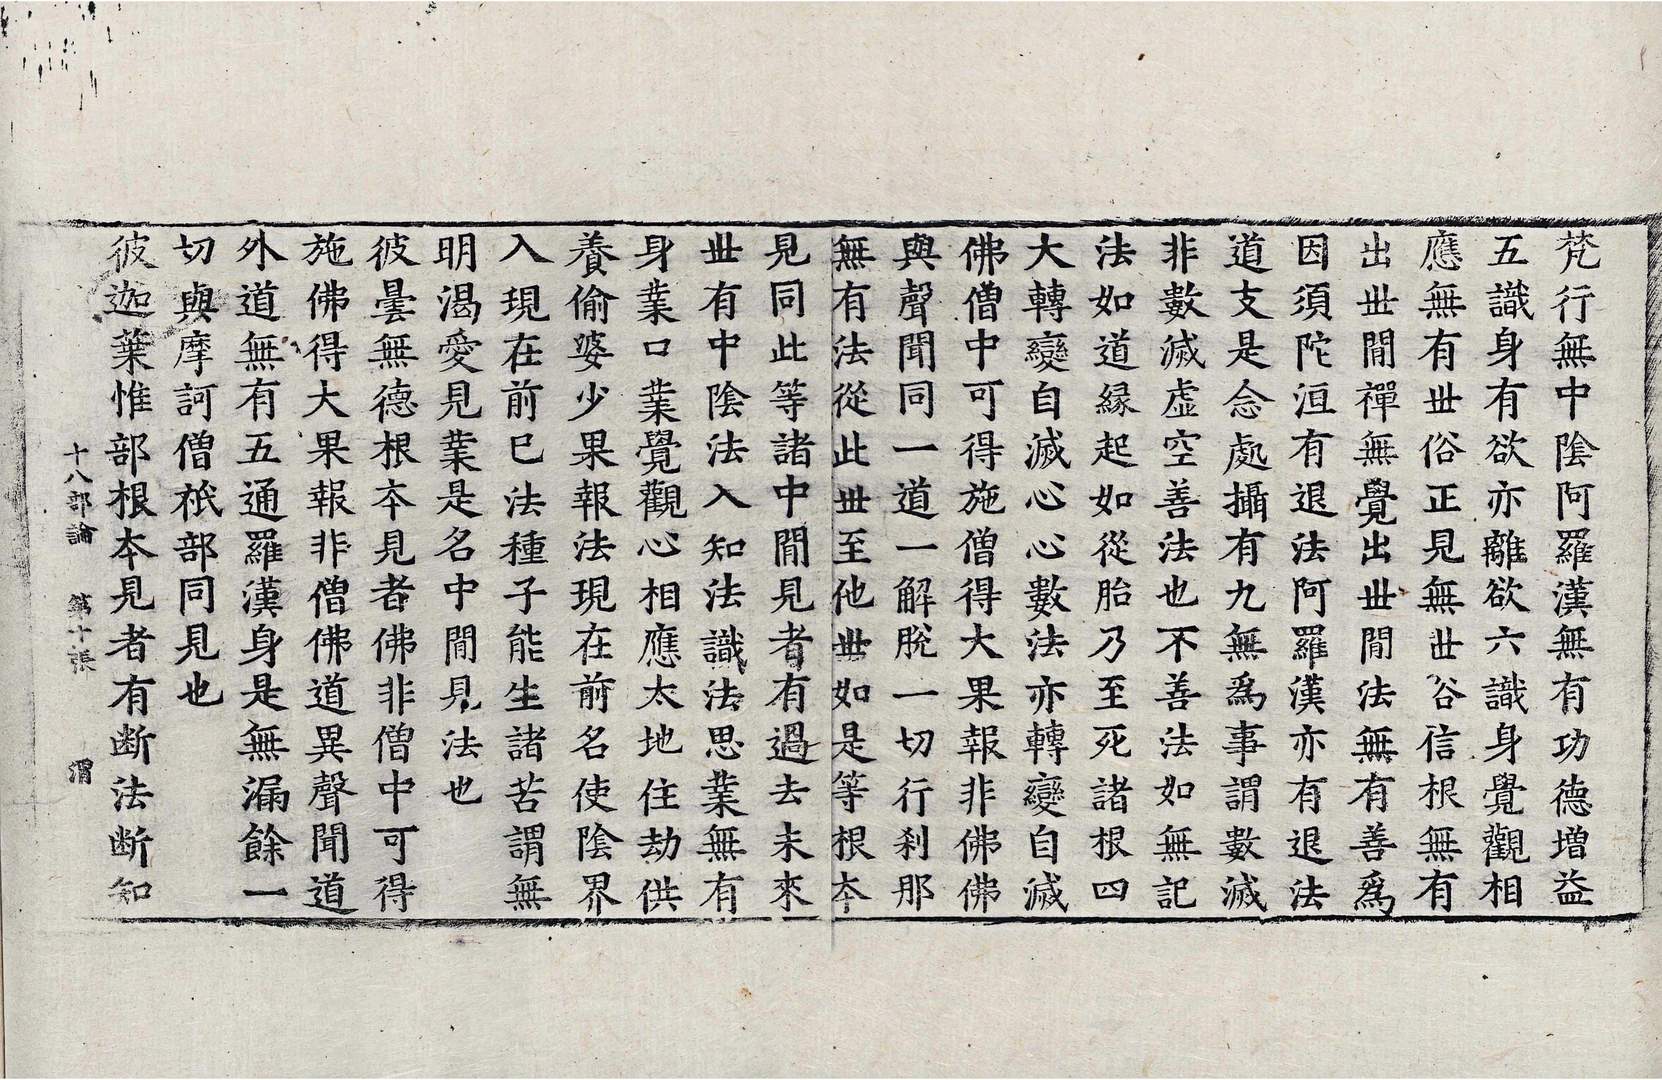 梵行無中陰阿羅漢無有功德增益
五識身有欲亦離欲六識身覺觀相
應無有丗俗正見無丗谷信根無有
出丗閒禪無覺出丗閒法無有善爲
因須陀洹有退法阿羅漢亦有退法
道支是念處攝有九無爲事謂數滅
非數滅虛空善法也不善法如無記
法如道縁起如從胎乃至死諸根四
大轉變自滅心心數法亦轉變自滅
佛僧中可得施僧得大果報非佛佛
與聲聞同一道一解脫一切行刹那
無有法從此丗至他丗如是等根本
見同此等諸中閒見者有過去未來
丗有中陰法入知法識法思業無有
身業口業覺觀心相應太地住劫供
養偷婆少果報法現在前名使陰界
入現在前巳法種子能生諸苦謂無
明渴愛見業是名中閒見法也
彼曇無德根本見者佛非僧中可得
施佛得大果報非僧佛道異聲聞道
外道無有五通羅漢身是無漏餘一
切與摩訶僧祇部同見也
彼迦葉惟部根本見者有断法断知
十八部論 第十張 渭